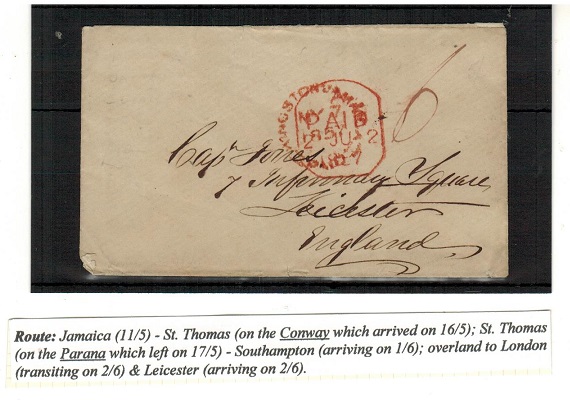 KINGSTON JAMAICA
PAID
2 JU 2
1857
6
Capt Jones
7 Infirmary Square
Leicester
England
Route: Jamaica (11/5) - St. Thomas (on the Conway which arrived on 16/5); St. Thomas
(on the Parana which left on 17/5) - Southampton (arriving on 1/6); overland to London
(transiting on 2/6) & Leicester (arriving on 2/6).